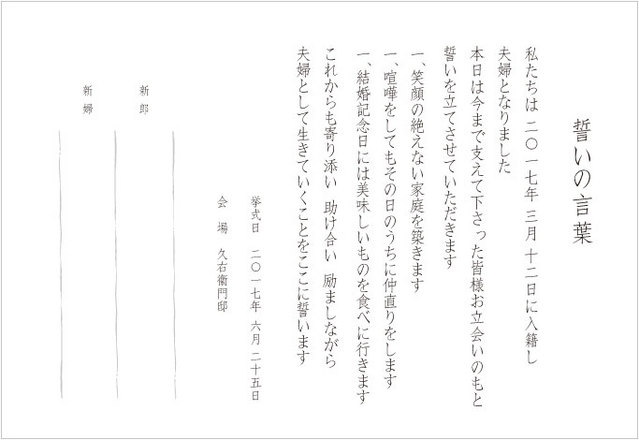 誓いの言葉
私たちは 二〇一七年 三月 十二日に入籍し
夫婦となりました
本日は今まで支えて下さった皆様お立会いのもと
誓いを立てさせていただきます
一、笑顔の絶えない家庭を築きます
一、喧嘩をしてもその日のうちに仲直りをします
一、結婚記念日には美味しいものを食べに行きます
これからも寄り添い 助け合い 励ましながら
夫婦として生きていくことをここに誓います
挙式日 二〇一七年 六月 二十五日
会 場 久右衛門邸
新郎
新婦